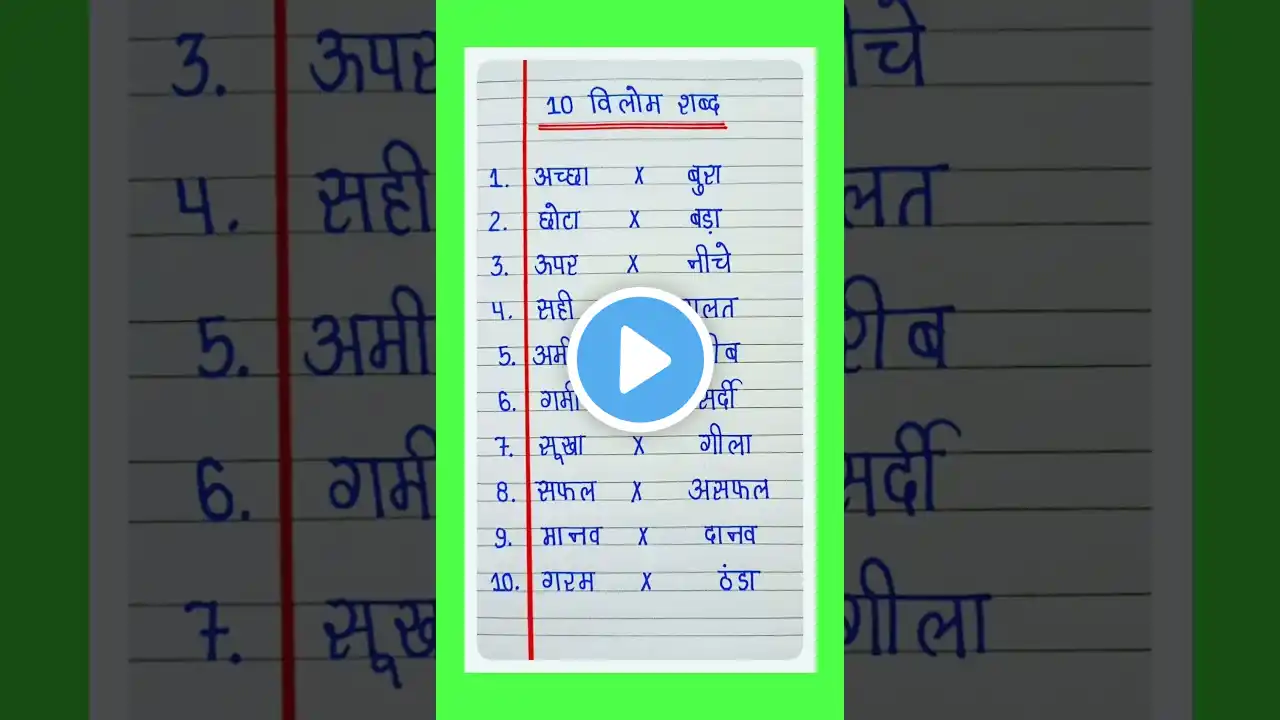 10 विलोम शब्द
1. अच्छा x बुरा
2. छोटा x बड़ा
3. ऊपर x नीचे
4. सही गलत
5.
6. गर्मी सर्दी
7. सूखा x गीला
8. सफल x असफल
9. मानव x दानव
10. गरम x ठंडा